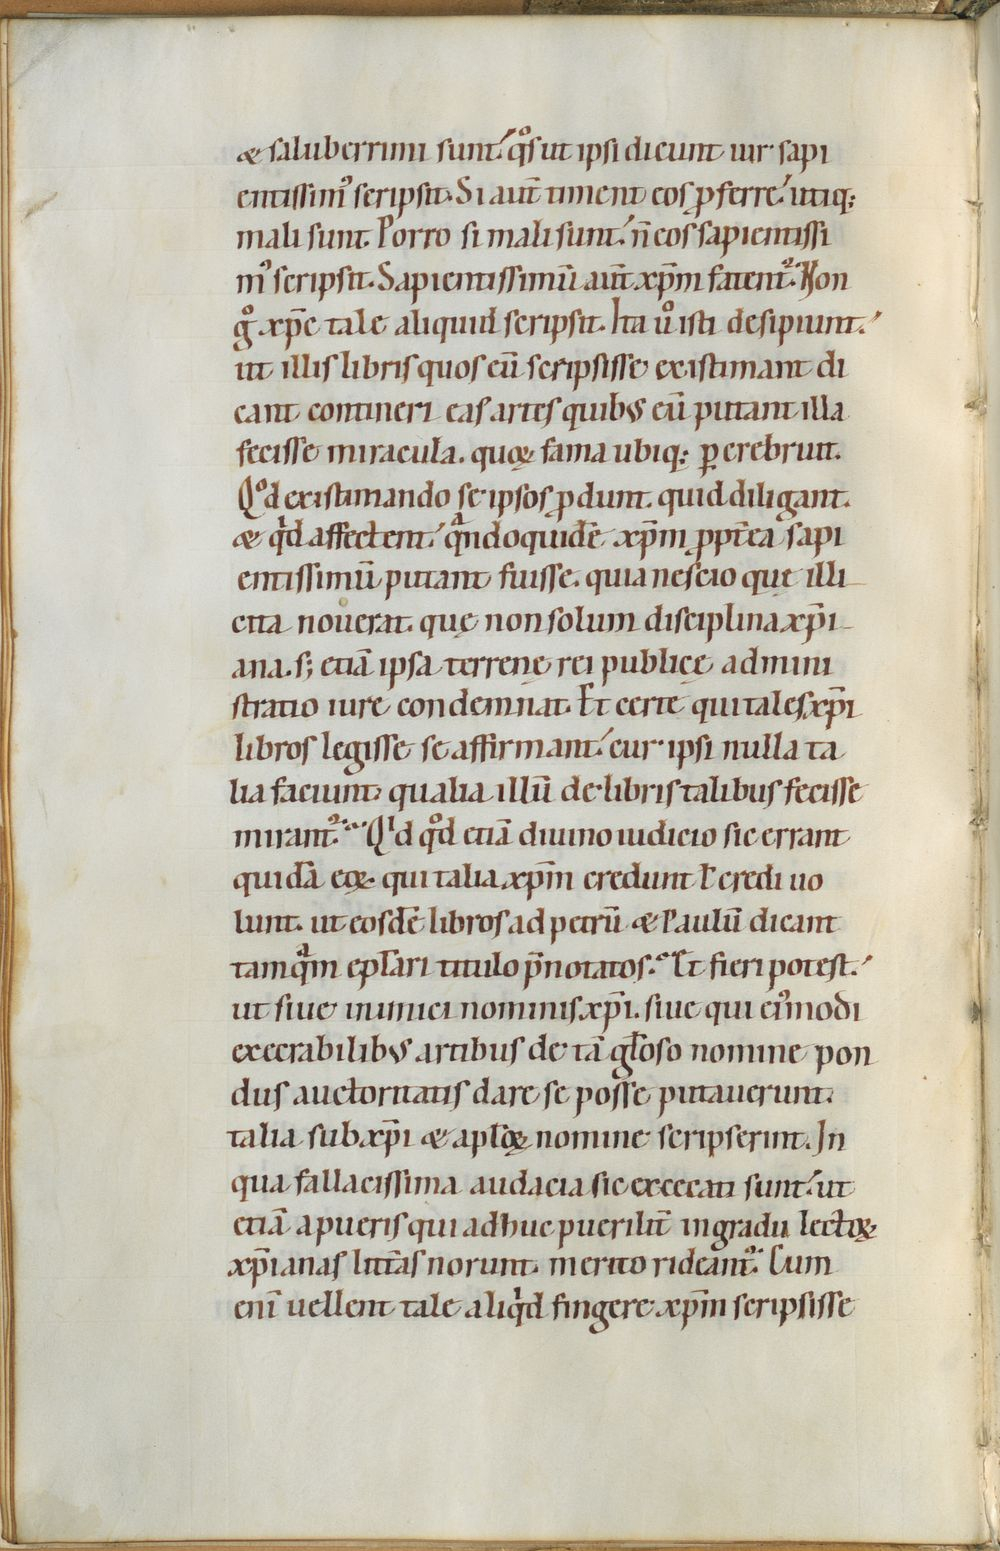 & saluberrimi sunt. qͦs ut ipsi dicunt uir sapi
entissimꝰ scripsit. Si aut̄ timent eos ꝓferre. utiq;
mali sunt. Porro si mali sunt. n̄ eos sapientissi
mꝰ scripsit. Sapientissimū aut̄ xp̄m fatent᷑. Non
gͦ xp̄c tale aliquid scripsit. Ita uͦ isti desipiunt.
ut illis libris quos eū scripsisse existimant di
cant contineri eas artes quibꝰ eū putant illa
fecisse miracula. quoꝝ fama ubiq; ꝑcrebruit.
Qͦd existimando se ipsos ꝓdunt. quid diligant.
& qͥd affectent. qͣndoquidē xp̄m ꝓpt̄ea sapi
entissimū putant fuisse. quia nescio quę illi
cita nouerat. quę non solum disciplina xp̄i
ana. s; etiā ipsa terrenę rei publicę admini
stratio iure condemnat. Et certe qui tales xp̄i
libros legisse se affirmant. cur ipsi nulla ta
lia faciunt. qualia illū de libris talibus fecisse
mirant᷑. Qͥd qͦd etiā diuino iudicio sic errant
quidā eoꝝ. qui talia xp̄m credunt ł credi uo
lunt. ut eosdē libros ad petrū & Paulū dicant
tamqͣm epł̄ari titulo p̄notatos. Et fieri potest.
ut siue inimici nominis xp̄i. siue qui eiꝰmodi
execrabilibꝰ artibus de tā gł̄oso nomine pon
dus auctoritatis dare se posse putauerunt.
talia sub xp̄i & apł̄oꝝ nomine scripserint. In
qua fallacissima audacia sic excecati sunt. ut
etiā a pueris qui adhuc puerilit̄ in gradu lectoꝝ
xp̄ianas litt̄as norunt. merito rideant᷑. Cum
eni̅ uellent tale aliqͥd fingere xp̄m scripsisse